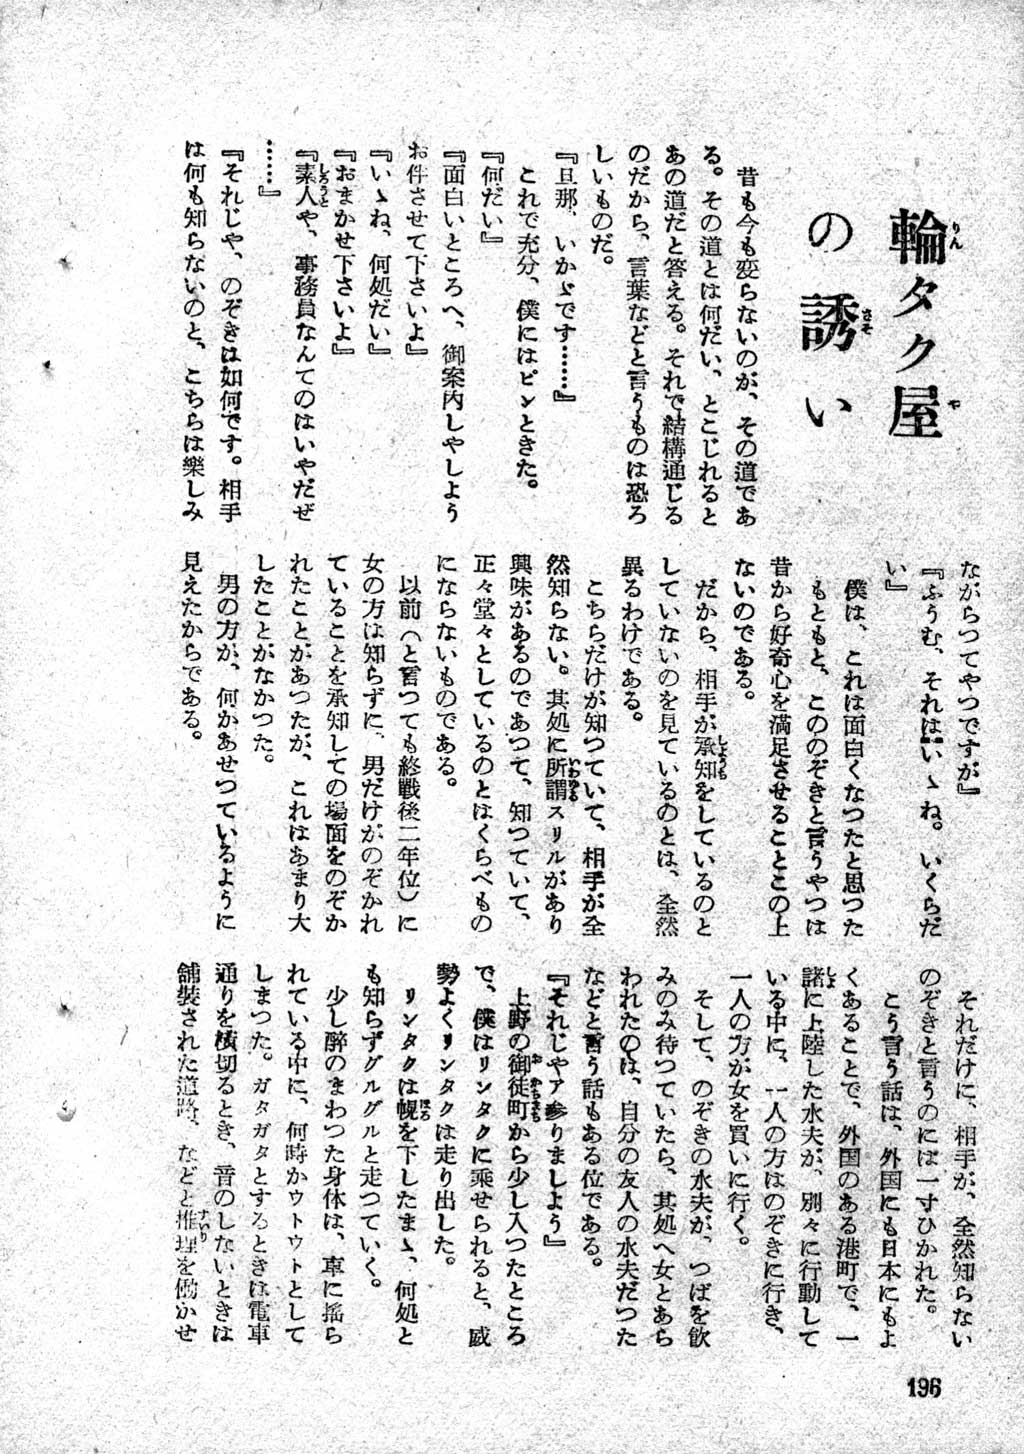 輪タク屋
の誘い
昔も今も変らないのが、その道であ
る。その道とは何だい、とこじれると
あの道だと答える。それで結構通じる
のだから、言葉などと言うものは恐ろ
しいものだ。
『旦那、いかゞです……』
これで充分、僕にはピンときた。
『何だい』
『面白いところへ、御案内しやしよう
お伴させて下さいよ』
『いゝね、何処だい』
『おまかせ下さいよ』
『素人や、事務員なんてのはいやだぜ
……』
『それじや、のぞきは如何です。相手
は何も知らないのと、こちらは樂しみ
ながらつてやつですが』
『ふうむ、それはいゝね。いくらだ
い』
僕は、これは面白くなつたと思つた
もともと、こののぞきと言うやつは
昔から好奇心を満足させることこの上
ないのである。
だから、相手が承知をしているのと
していないのを見ているのとは、全然
異るわけである。
こちらだけが知つていて、相手が全
然知らない。其処に所謂スリルがあり
興味があるのであつて、知つていて、
正々堂々としているのとはくらべもの
にならないものである。
以前（と言つても終戦後二年位）に
女の方は知らずに、男だけがのぞかれ
ていることを承知しての場面をのぞか
れたことがあつたが、これはあまり大
したことがなかつた。
男の方が、何かあせつているように
見えたからである。
それだけに、相手が、全然知らない
のぞきと言うのには一寸ひかれた。
こう言う話は、外国にも日本にもよ
くあることで、外国のある港町で、一
諸に上陸した水夫が、別々に行動して
いる中に、一人の方はのぞきに行き、
一人の方が女を買いに行く。
そして、のぞきの水夫が、つばを飲
みのみ待つていたら、其処へ女とあら
われたのは、自分の友人の水夫だつた
などと言う話もある位である。
『それじやア参りましよう』
上野の御徒町から少し入つたところ
で、僕はリンタクに乗せられると、威
勢よくリンタクは走り出した。
リンタクは幌を下したまゝ、何処と
も知らずグルグルと走つていく。
少し醉のまわつた身体は、車に搖ら
れている中に、何時かウトウトとして
しまつた。ガタガタとするときは電車
通りを横切るとき、音のしないときは
舗装された道路、などと推理を働かせ
196